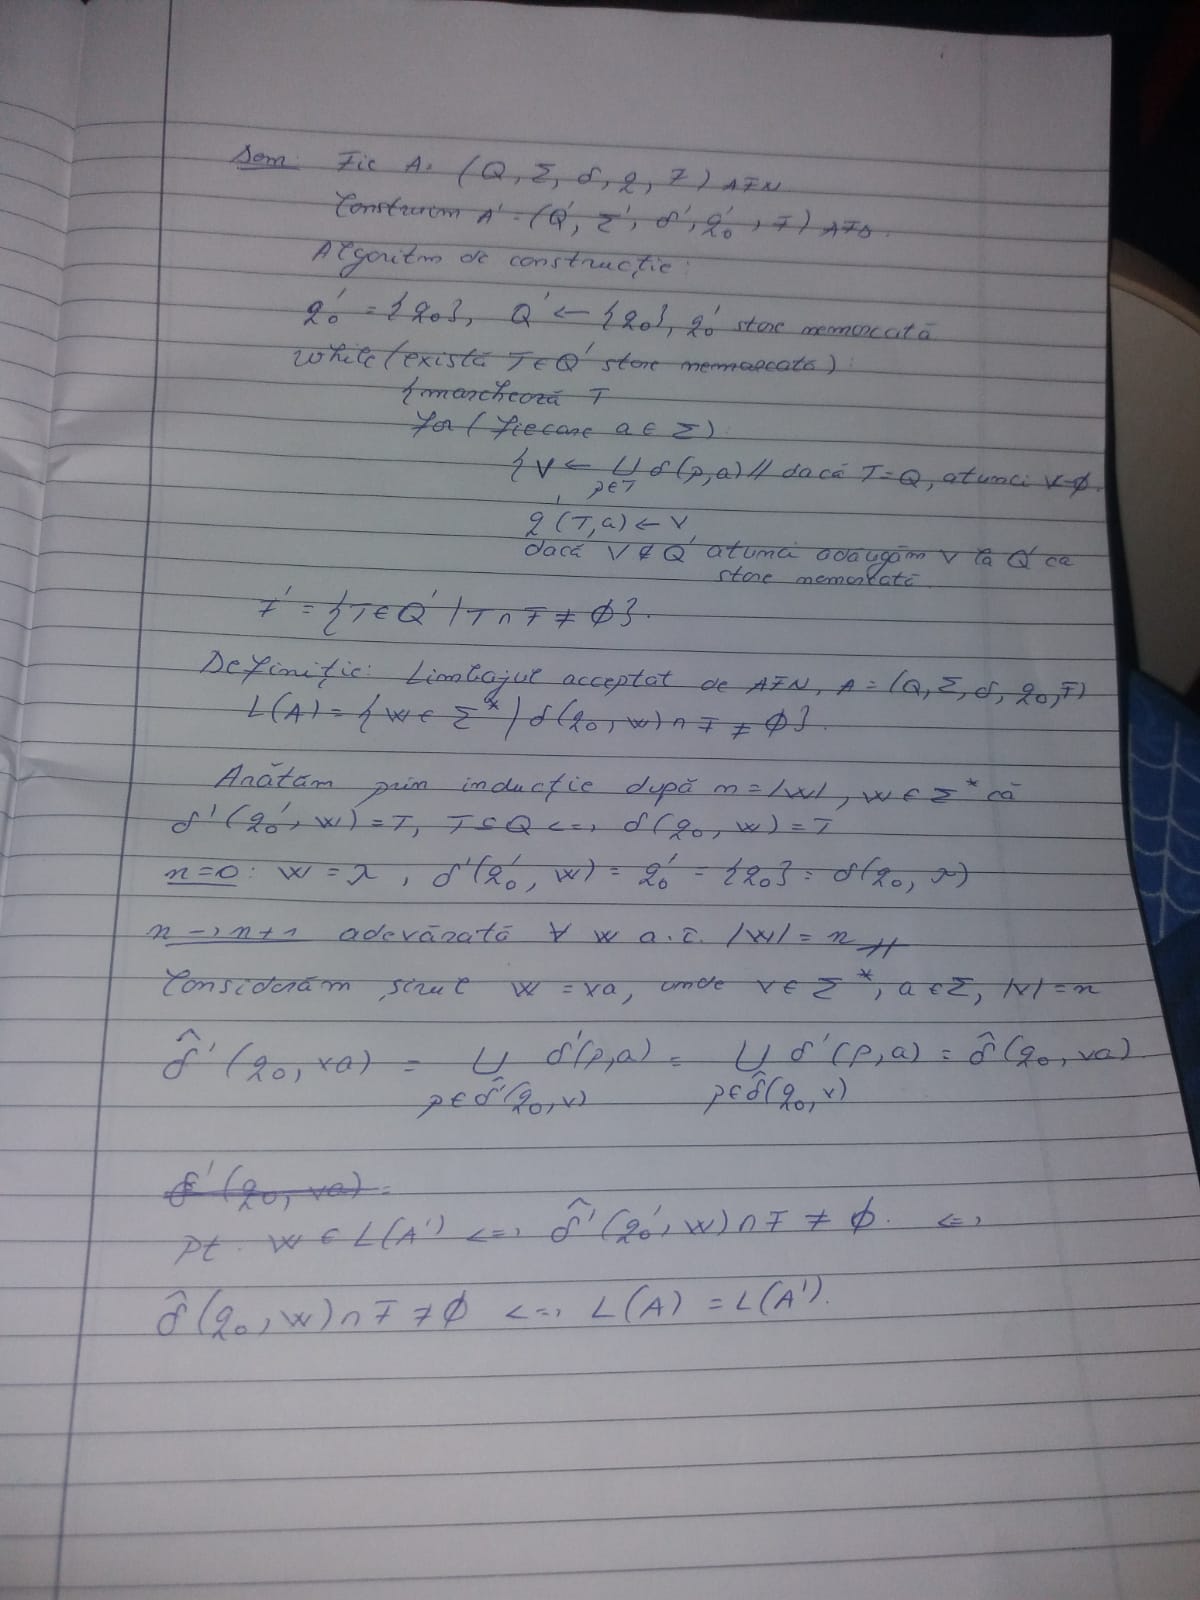 Dem: Fie A = (Q, Σ, δ, q, F) AFN
Construim A' = (Q', Σ', δ', q₀', F) AFD.
Algoritm de construcție:
q₀' = {q₀}, Q' ← {q₀}, q₀' stare nemarcată
While (există T ∈ Q' stare nemarcată)
{marchează T
for (fiecare a ∈ Σ)
{V ← ∪ δ(p,a) // dacă T = Q, atunci V=∅.
p∈T
q'(T,a) ← V
dacă V ∉ Q' atunci adaugăm V la Q' ca
stare nemarcată
F' = {T ∈ Q' / T ∩ F ≠ ∅}.
Definiție: Limbajul acceptat de AFN, A = (Q, Σ, δ, q₀, F)
L(A) = {w ∈ Σ* / δ(q₀, w) ∩ F ≠ ∅}.
Arătăm prin inducție după n = |w|, w ∈ Σ* că
δ'(q₀', w) = T, T ⊆ Q <=> δ(q₀, w) = T
n=0: w = λ, δ'(q₀', w) = q₀' = {q₀} = δ(q₀, λ)
n -> n+1 adevărată ∀ w a.î. |w| = n
Considerăm șirul w = va, unde v ∈ Σ*, a ∈ Σ, |v| = n
δ̂'(q₀, va) = ∪ δ'(p,a) = ∪ δ'(p,a) = δ̂(q₀, va)
p∈δ̂'(q₀,v) p∈δ̂(q₀,v)
δ'(q₀, va) =
pt. w ∈ L(A') <=> δ̂'(q₀', w) ∩ F ≠ ∅. <=>
δ̂(q₀, w) ∩ F ≠ ∅ <=> L(A) = L(A').